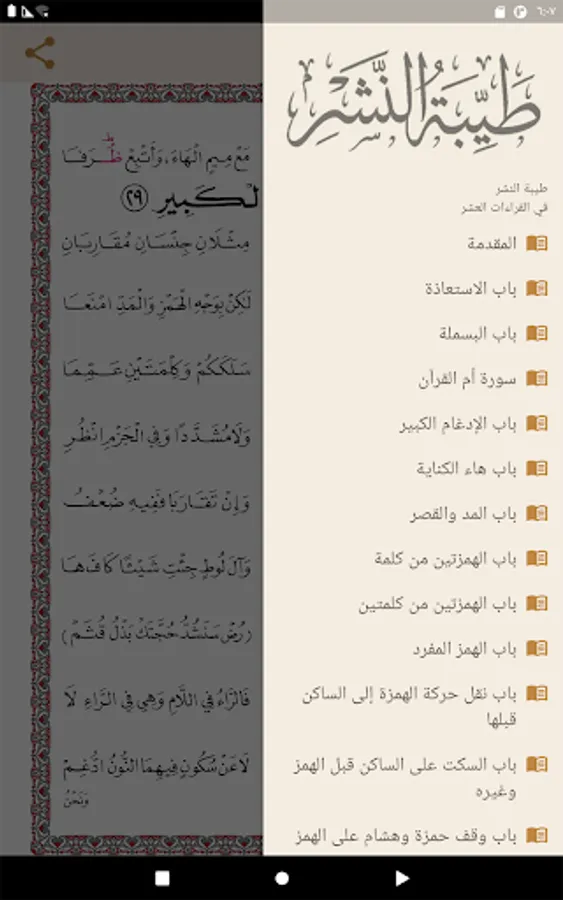 ٦:٠٧
طَيِّبَةُ النَّشْرِ
طيبة النشر
في القراءات العشر
المقدمة
باب الاستعاذة
باب البسملة
سورة أم القرآن
باب الإدغام الكبير
باب هاء الكناية
باب المد والقصر
باب الهمزتين من كلمة
باب الهمزتين من كلمتين
باب الهمز المفرد
باب نقل حركة الهمزة إلى الساكن
قبلها
باب السكت على الساكن قبل الهمز
وغيره
باب وقف حمزة وهشام على الهمز
مَعْ مِيمِ الْهَاءَ، وَأَتْبِعْ ظُرَفَا
لْكَبِيرِ ٢٩
مِثْلَانِ جِنْسَانِ مُقَارِبَانِ
لَكِنْ بِوَجْهِ الْهَمْزِ وَالْمَدِّ امْنَعَا
سَلَكَكُمْ وَكِلْمَتَيْنِ عَمِّمَا
وَلَا مُشَدَّدًا وَفِي الْجَزْمِ انْظُرِ
وَإِنْ تَقَارَبَا فَفِيهِ ضُعْفُ
وَآلَ لُوطٍ جِئْتِ شَيْئًا كَافَ هَا
(رُضْ سَنَشُدُّ حُجَّتَكَ بَذْلُ قُثَمْ)
فَالرَّاءُ فِي اللَّامِ وَهِي فِي الرَّاءِ لَا
لَا عَنْ سُكُونٍ فِيهِمَا النُّونُ ادُّغِمْ
وَنَحْنُ